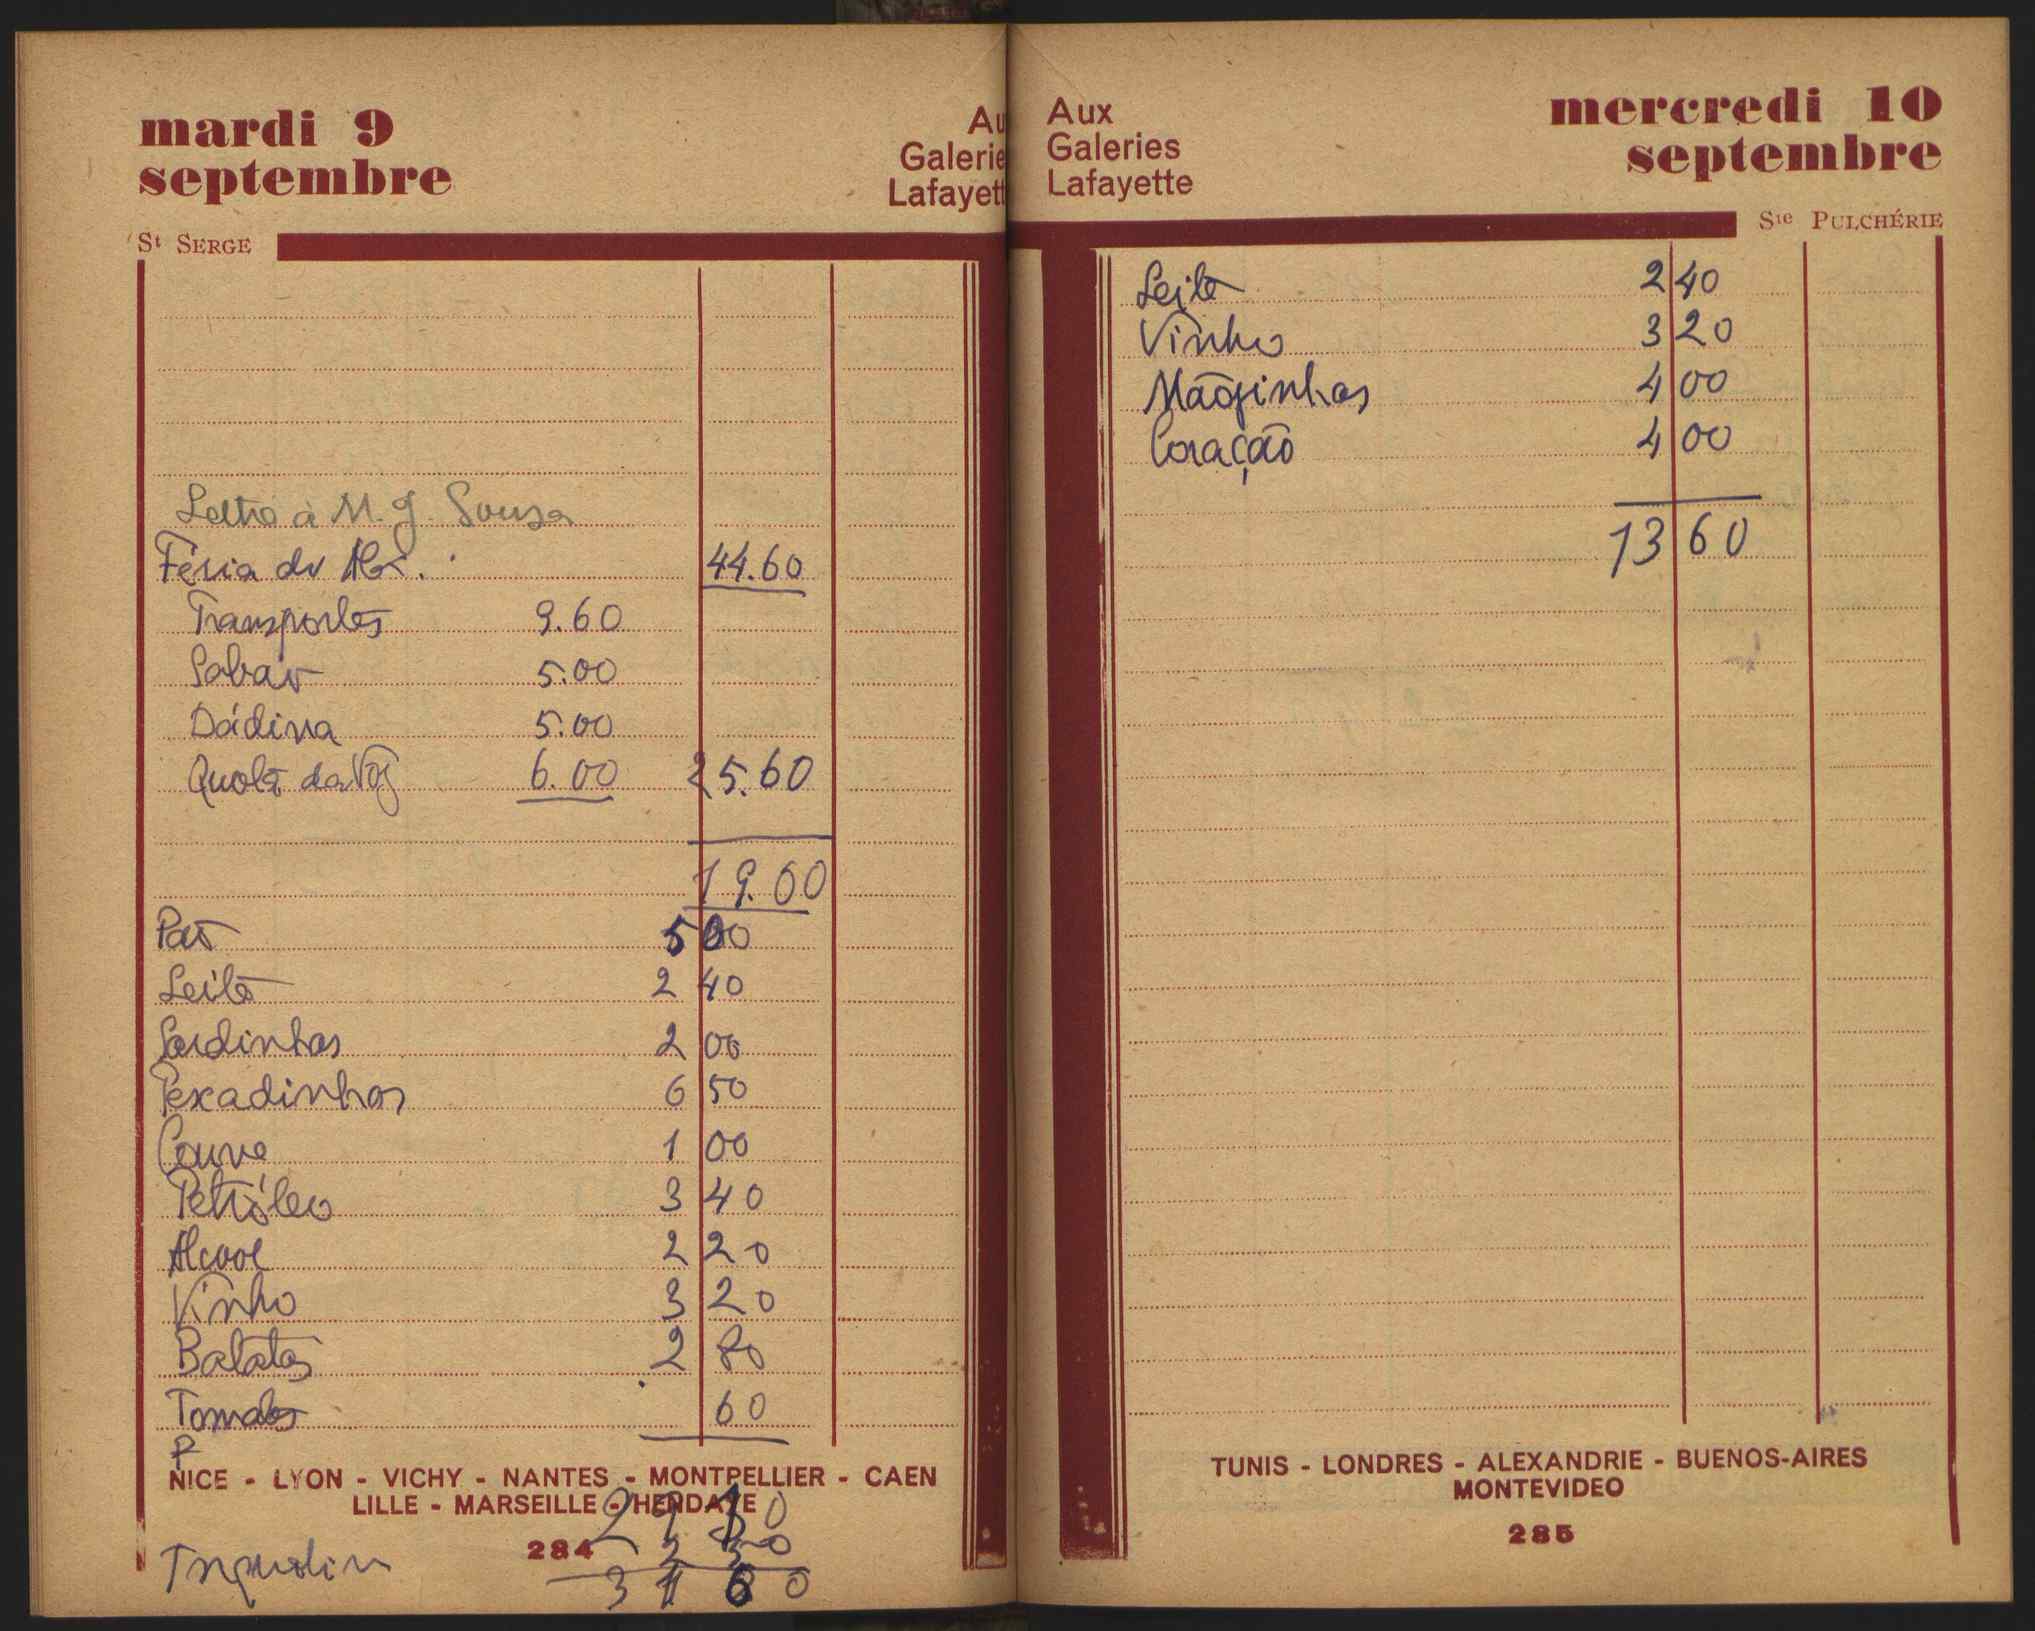 mardi 9
septembre
Au
Galerie
Lafayett
St SERGE
à M. J. Sousa
Féria do 44.60
Transportes 9.60
Sabão 5.00
Dádiva 5.00
Quota da Voz 6.00 25.60
19.00
Pão 5 00
Leite 2 40
Sardinhas 2 00
Pexadinhas 6 50
Couve 1 00
Petróleo 3 40
Alcool 2 20
Vinho 3 20
Batatas 2 80
Tomates 60
P
NICE - LYON - VICHY - NANTES - MONTPELLIER - CAEN
LILLE - MARSEILLE - HENDAYE
29 10
284
2 50
31 60
Aux
Galeries
Lafayette
mercredi 10
septembre
Ste PULCHÉRIE
Leite 2 40
Vinho 3 20
Mãozinhas 4 00
Coração 4 00
13 60
TUNIS - LONDRES - ALEXANDRIE - BUENOS-AIRES
MONTEVIDEO
285